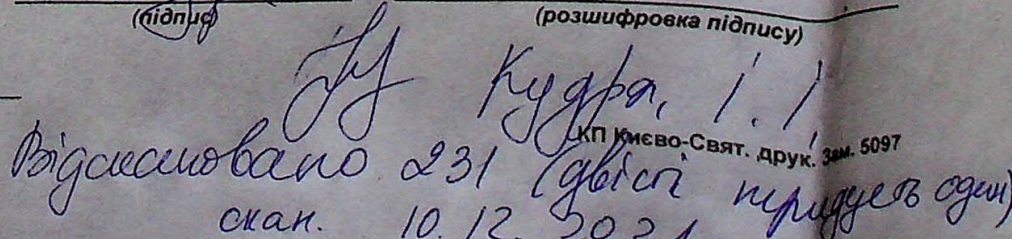 (підпис) (розшифровка підпису)
Кудря І. І.
КП Києво-Свят. друк. Зам. 5097
Відскановано 231 (двісті тридцять один)
скан. 10.12.2021